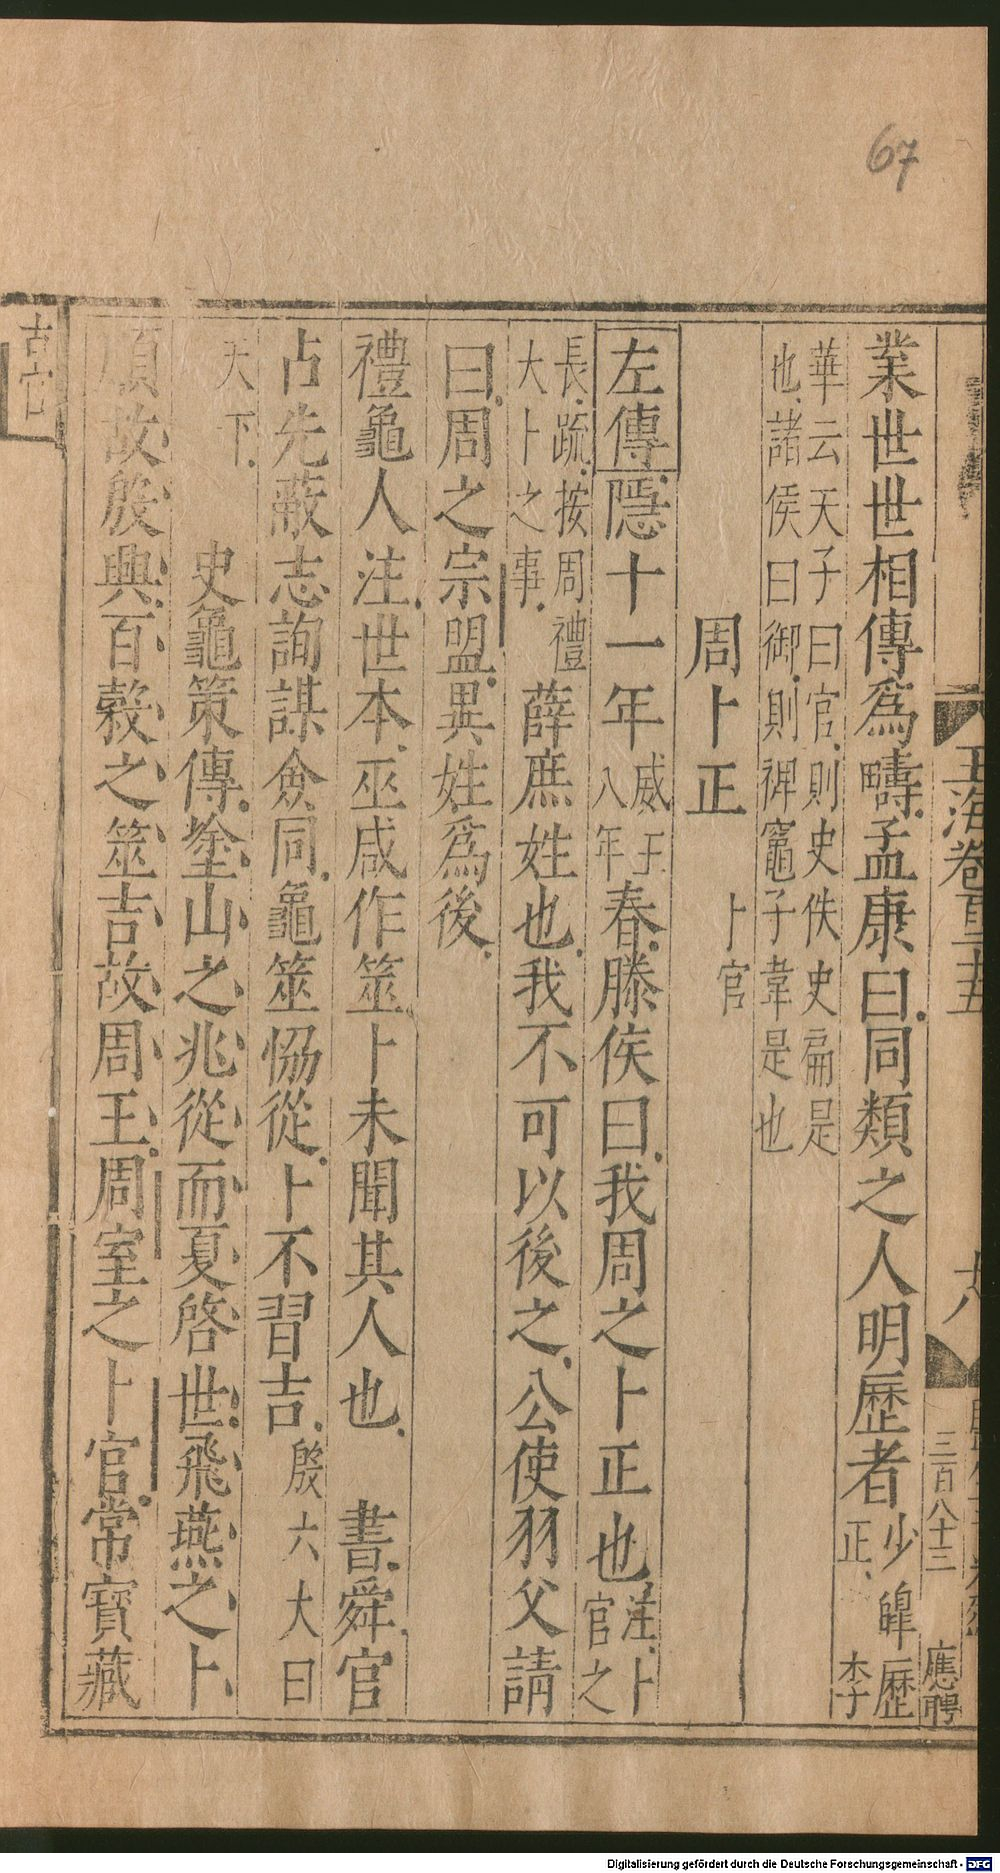 67
玉海卷百二十五
廿八
三百八十三
應聘
業世世相傳爲疇孟康曰同類之人明歷者少皥歷正李
華云天子曰官則史佚史扁是
也諸侯曰御則裨竈子韋是也
周卜正 卜官
左傳隱十一年威王八年春滕侯曰我周之卜正也注卜官之
長疏按周禮大卜之事薛庶姓也我不可以後之公使羽父請
曰周之宗盟異姓爲後
禮龜人注世本巫咸作筮卜未聞其人也 書舜官
占先蔽志詢謀僉同龜筮恊從卜不習吉殷六大曰
天下 史龜策傳塗山之兆從而夏啓世飛燕之卜
順故殷興百榖之筮吉故周王周室之卜官常寶藏
古官
Digitalisierung gefördert durch die Deutsche Forschungsgemeinschaft - DFG